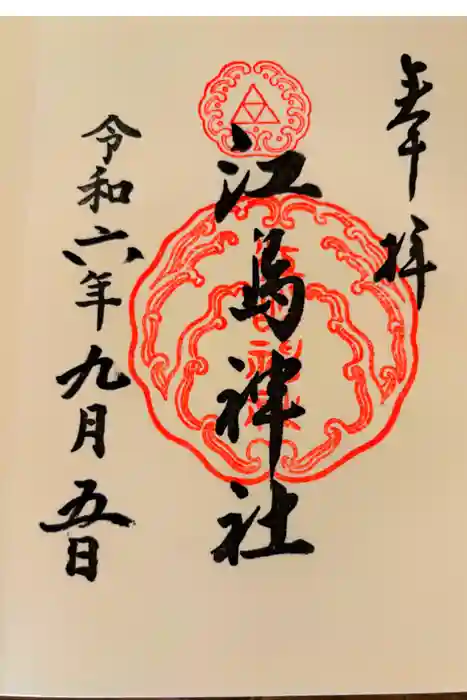 奉拝
江島神社
令和六年九月五日